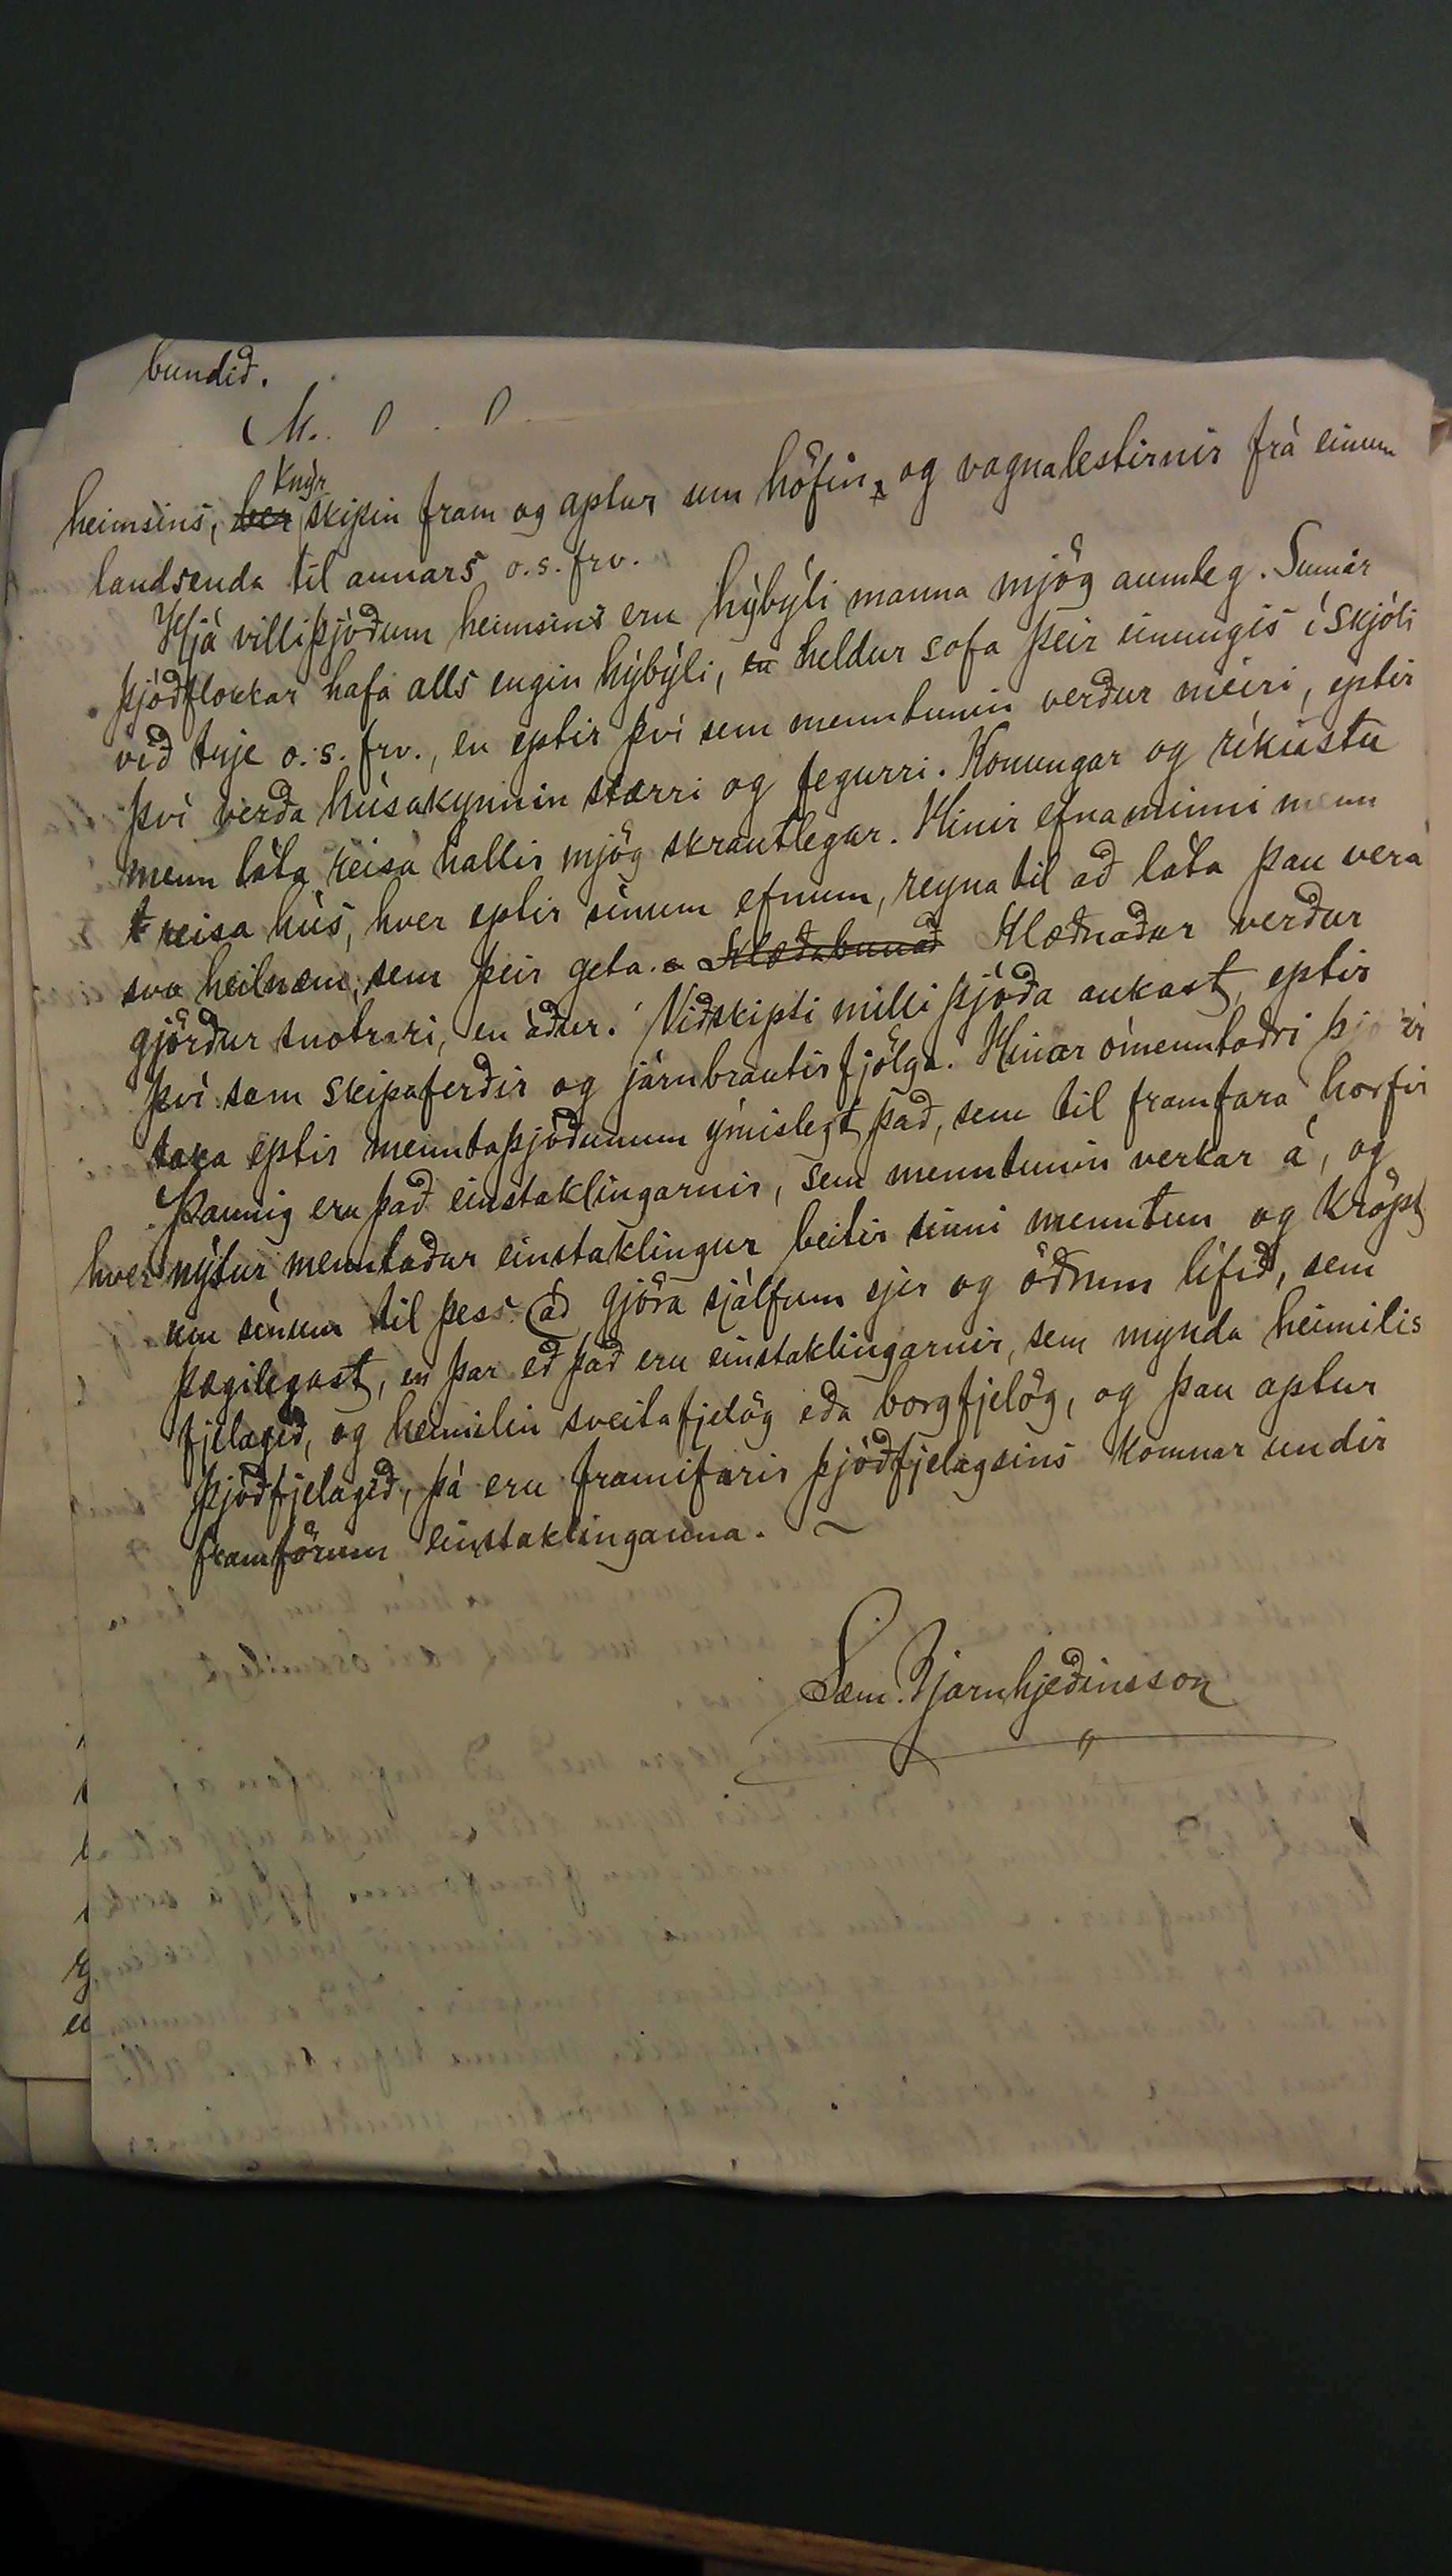 bundið.
M. 0 . 0
knýr
heimsins, ber skipin fram og aptur um höfin, og vagnalestirnir frá einum
landsenda til annars o.s.frv.
Hjá villiþjóðum heimsins eru hýbýli manna mjög aumleg. Sumir
þjóðflokkar hafa alls engin hýbýli, en heldur sofa þeir einungis í skjóli
við trje o.s.frv., en eptir því sem menntunin verður meiri, eptir
því verða húsakynnin stærri og fegurri. Konungar og ríkustu
menn láta reisa hallir mjög skrautlegar. Hinir efnaminni menn
reisa hús, hver eptir sínum efnum, reyna til að láta þau vera
svo heilnæm, sem þeir geta. Klæðabunað Klæðnaður verður
gjörður snotrari, en áður. Viðskipti milli þjóða aukast, eptir
því sem skipaferðir og járnbrautir fjölga. Hinar ómenntaðri
taka eptir menntaþjóðunum ýmislegt það, sem til framfara horfir
Þannig eru það einstaklingarnir, sem menntunin verkar á, og
hver nýtur, menntaður einstaklingur beitir sinni menntun og kröpt
um sínum til þess að gjöra sjálfum sjer og öðrum lífið, sem
þægilegast, en þar eð það eru einstaklingarnir, sem mynda heimilis
fjelagið, og heimilin sveitafjelög eða borgfjelög, og þau aptur
þjóðfjelagið, þá eru framifarir þjóðfjelagsins komnar undir
framförum einstaklinganna. ~
Sæm. Bjarnhjeðinsson